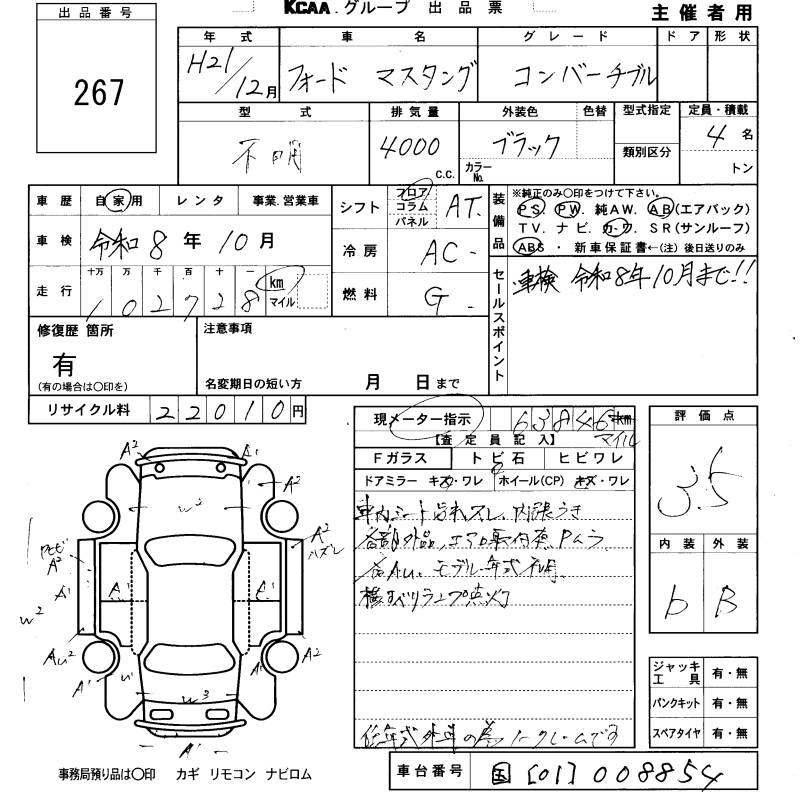 出品番号
267
KCAA.グループ 出品票
主催者用
年式 車名 グレード ドア 形状
H21/12月 フォード マスタング コンバーチブル
型式 排気量 外装色 色替 型式指定 定員・積載
不明 4000 C.C. ブラック カラーNo. 類別区分 4名
トン
車歴 自家用 レンタ 事業.営業車
車検 令和8年10月
走行 十万 万 千 百 十 一 km マイル
102728
シフト フロア コラム パネル AT.
冷房 AC-
燃料 G.
装備品
※純正のみ○印をつけて下さい。
PS. PW. 純AW. AB(エアバック)
TV. ナビ. カ-ワ. SR(サンルーフ)
ABS・新車保証書←(注)後日送りのみ
セールスポイント
車検 令和8年10月まで!!
修復歴 箇所
有
(有の場合は○印を)
注意事項
名変期日の短い方 月 日まで
リサイクル料 22010円
現メーター指示 63846 km
マイル
【査定員記入】
Fガラス トビ石 ヒビワレ
ドアミラー キズ・ワレ ホイール(CP) キズ・ワレ
車内シート汚れスレ、内張うき
各部外品、エアロ取付痕Pムラ
各Au. モデル年式不明.
横すべりランプ点灯
低年式外車の為ノークレームです
評価点
3.5
内装 外装
b B
ジャッキ工具 有・無
パンクキット 有・無
スペアタイヤ 有・無
A² A' A² W² A² ハズレ
A² A' W² A' A'
Au² A' W³ A' A²
A'
事務局預り品は○印 カギ リモコン ナビロム
車台番号 国[01]008854